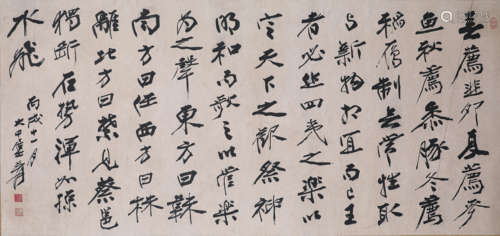 春薦韭卵夏薦麥
魚秋薦黍豚冬薦
稻鴈制無常牲取
與新物相宜而已王
者必作四夷之樂以
定天下之歡祭神
明和而歌之以管樂
為之聲東方曰韎
南方曰任西方曰株
離北方曰禁見蔡邕
獨斷石勢渾如掠
水飛
丙戌十一月
大千爰